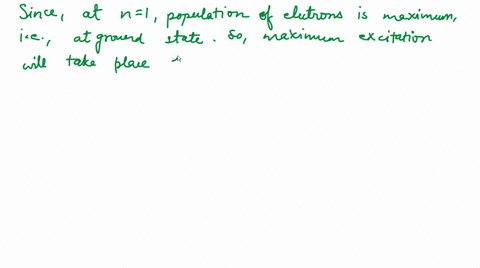 Since, at n=1, population of elutrons is maximum,
i.e., at ground state. So, maximum excitation
will take place